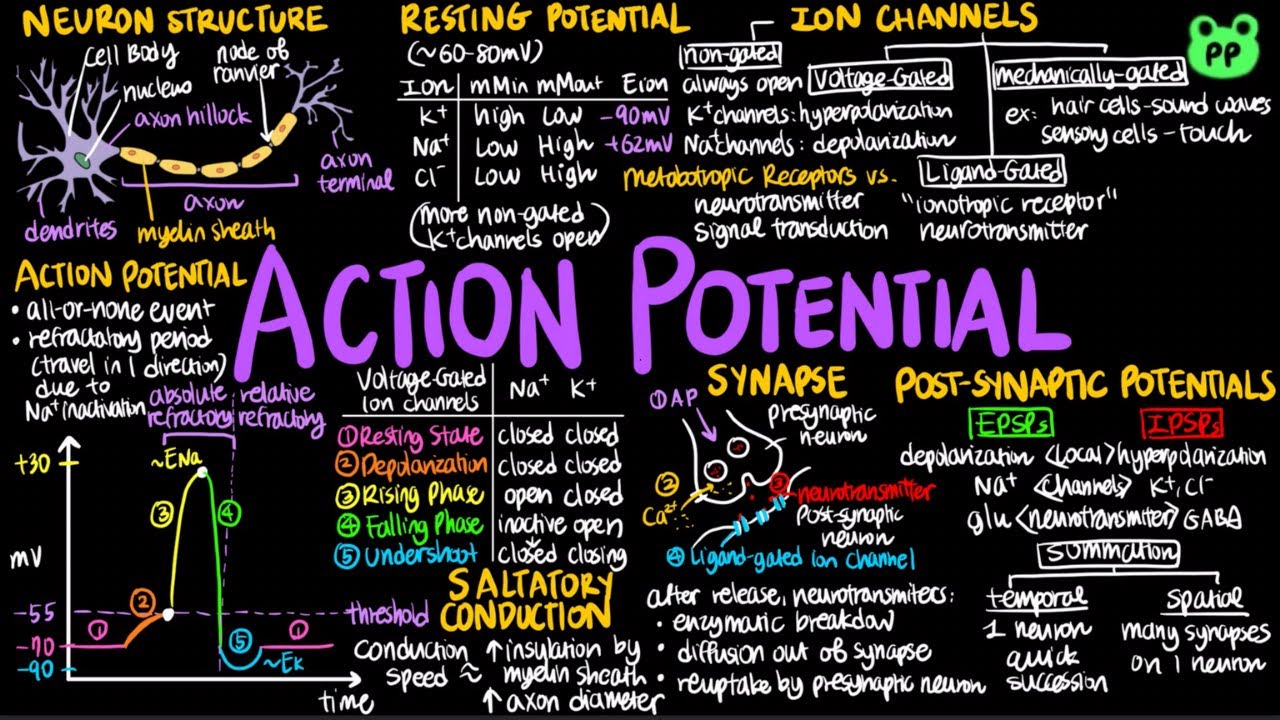 NEURON STRUCTURE
cell Body
node of
ranvier
nucleus
axon hillock
axon
terminal
axon
dendrites
myelin sheath
RESTING POTENTIAL
(~60-80mV)
Ion mMin mMout Eion
K+ high Low -90mV
Na+ Low High +62mV
Cl- Low High
(more non-gated
K+channels open)
ION CHANNELS
non-gated
always open
Voltage-Gated
K+channels: hyperpolarization
Na+channels: depolarization
mechanically-gated
ex: hair cells-sound waves
sensory cells-touch
Metabotropic Receptors vs.
neurotransmitter
signal transduction
Ligand-Gated
"ionotropic receptor"
neurotransmitter
PP
ACTION POTENTIAL
ACTION POTENTIAL
• all-or-none event
• refractatory period
(travel in 1 direction)
due to
Na+ inactivation
absolute
refractory
relative
refractory
+30
~ENa
③
④
mV
-55
②
threshold
-70
①
⑤
①
-90
~EK
time
Voltage-Gated
Ion channels
Na+ K+
①Resting State closed closed
②Depolarization closed closed
③Rising Phase open closed
④Falling Phase inactive open
⑤Undershoot closed closing
SALTATORY
CONDUCTION
conduction
speed ≈
↑insulation by
myelin sheath
↑axon diameter
SYNAPSE
①AP
presynaptic
neuron
②
Ca2+
③
neurotransmitter
Post-synaptic
neuron
④Ligand-gated ion channel
after release, neurotransmiters:
• enzymatic breakdow
• diffusion out of synapse
• reuptake by presynaptic neuron
POST-SYNAPTIC POTENTIALS
EPSPs IPSPs
depolarization <Local> hyperpolarization
Na+ <channels> K+, Cl-
glu <neurotransmiter> GABA
summation
temporal
1 neuron
quick
succession
spatial
many synapses
on 1 neuron